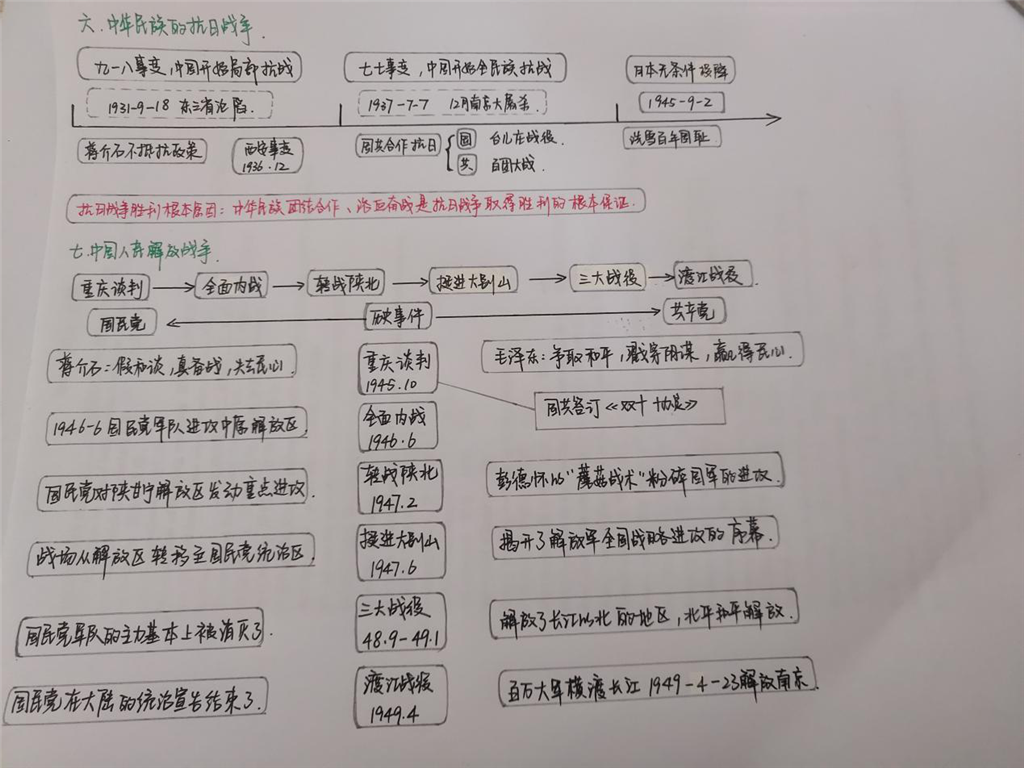 六.中华民族的抗日战争.
九一八事变,中国开始局部抗战
七七事变,中国开始全民族抗战
日本无条件投降
1931-9-18 东三省沦陷.
1937-7-7 12月南京大屠杀.
1945-9-2
蒋介石不抵抗政策
西安事变
1936.12
国共合作抗日
国 台儿庄战役.
共 百团大战.
洗雪百年国耻
抗日战争胜利根本原因:中华民族团结合作、浴血奋战是抗日战争取得胜利的根本保证.
七.中国人民解放战争
重庆谈判 全面内战 转战陕北 挺进大别山 三大战役 渡江战役.
国民党 历史事件 共产党
蒋介石:假和谈,真备战,失去民心
重庆谈判
1945.10
毛泽东:争取和平,戳穿阴谋,赢得民心.
国共签订《双十协定》
1946-6国民党军队进攻中原解放区.
全面内战
1946.6
国民党对陕甘宁解放区发动重点进攻.
转战陕北
1947.2
彭德怀以“蘑菇战术”粉碎国军的进攻.
战场从解放区转移至国民党统治区.
挺进大别山
1947.6
揭开了解放军全国战略进攻的序幕.
国民党军队的主力基本上被消灭了.
三大战役
48.9-49.1
解放了长江以北的地区,北平和平解放.
国民党在大陆的统治宣告结束了.
渡江战役
1949.4
百万大军横渡长江1949-4-23解放南京.